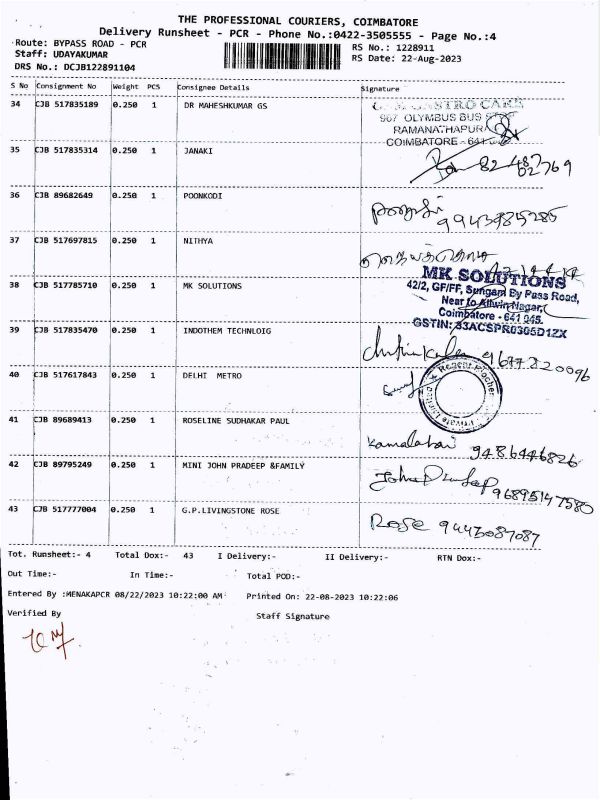 THE PROFESSIONAL COURIERS, COIMBATORE
Delivery Runsheet - PCR - Phone No.:0422-3505555 - Page No.:4
Route: BYPASS ROAD - PCR
RS No.: 1228911
Staff: UDAYAKUMAR
RS Date: 22-Aug-2023
DRS No.: DCJB122891104
S No Consignment No Weight PCS Consignee Details Signature
34 CJB 517835189 0.250 1 DR MAHESHKUMAR GS
GASTRO CARE
967 OLYMBUS BUS STOP
RAMANATHAPURA
COIMBATORE - 641
35 CJB 517835314 0.250 1 JANAKI
36 CJB 89682649 0.250 1 POONKODI
37 CJB 517697815 0.250 1 NITHYA
38 CJB 517785710 0.250 1 MK SOLUTIONS
MK SOLUTIONS
42/2, GF/FF, Sungam By Pass Road,
Near to Allwin Nagar,
Coimbatore - 641 045.
GSTIN: 33ACSPR0305D1ZX
39 CJB 517835470 0.250 1 INDOTHEM TECHNLOIG
40 CJB 517617843 0.250 1 DELHI METRO
41 CJB 89689413 0.250 1 ROSELINE SUDHAKAR PAUL
9486446826
42 CJB 89795249 0.250 1 MINI JOHN PRADEEP &FAMILY
43 CJB 517777004 0.250 1 G.P.LIVINGSTONE ROSE
Rose 9443087087
Tot. Runsheet:- 4 Total Dox:- 43 I Delivery:- II Delivery:- RTN Dox:-
Out Time:- In Time:- Total POD:-
Entered By :MENAKAPCR 08/22/2023 10:22:00 AM Printed On: 22-08-2023 10:22:06
Verified By Staff Signature